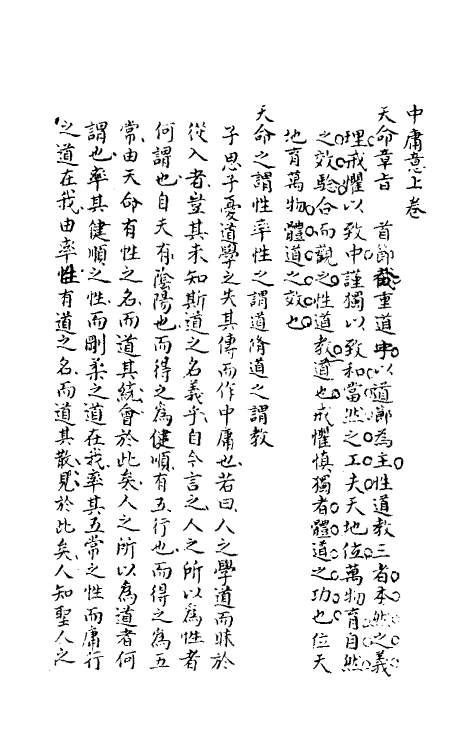 中庸意上卷
天命章旨　首節發重道字以道節為主性道教三者本然之義
理戒懼以致中謹獨以致和當然之工夫天地位萬物育自然
之效驗合而觀之性道教道也戒懼慎獨者體道之功也位天
地育萬物體道之效也
天命之謂性率性之謂道脩道之謂教
子思子憂道學之失其傳而作中庸也若曰人之學道而昧於
從入者豈其未知斯道之名義乎自今言之人之所以為性者
何謂也自夫有陰陽也而得之為健順有五行也而得之為五
常由天命有性之名而道其統會於此矣人之所以為道者何
謂也率其健順之性而剛柔之道在我率其五常之性而庸行
之道在我由率性有道之名而道其散見於此矣人知聖人之